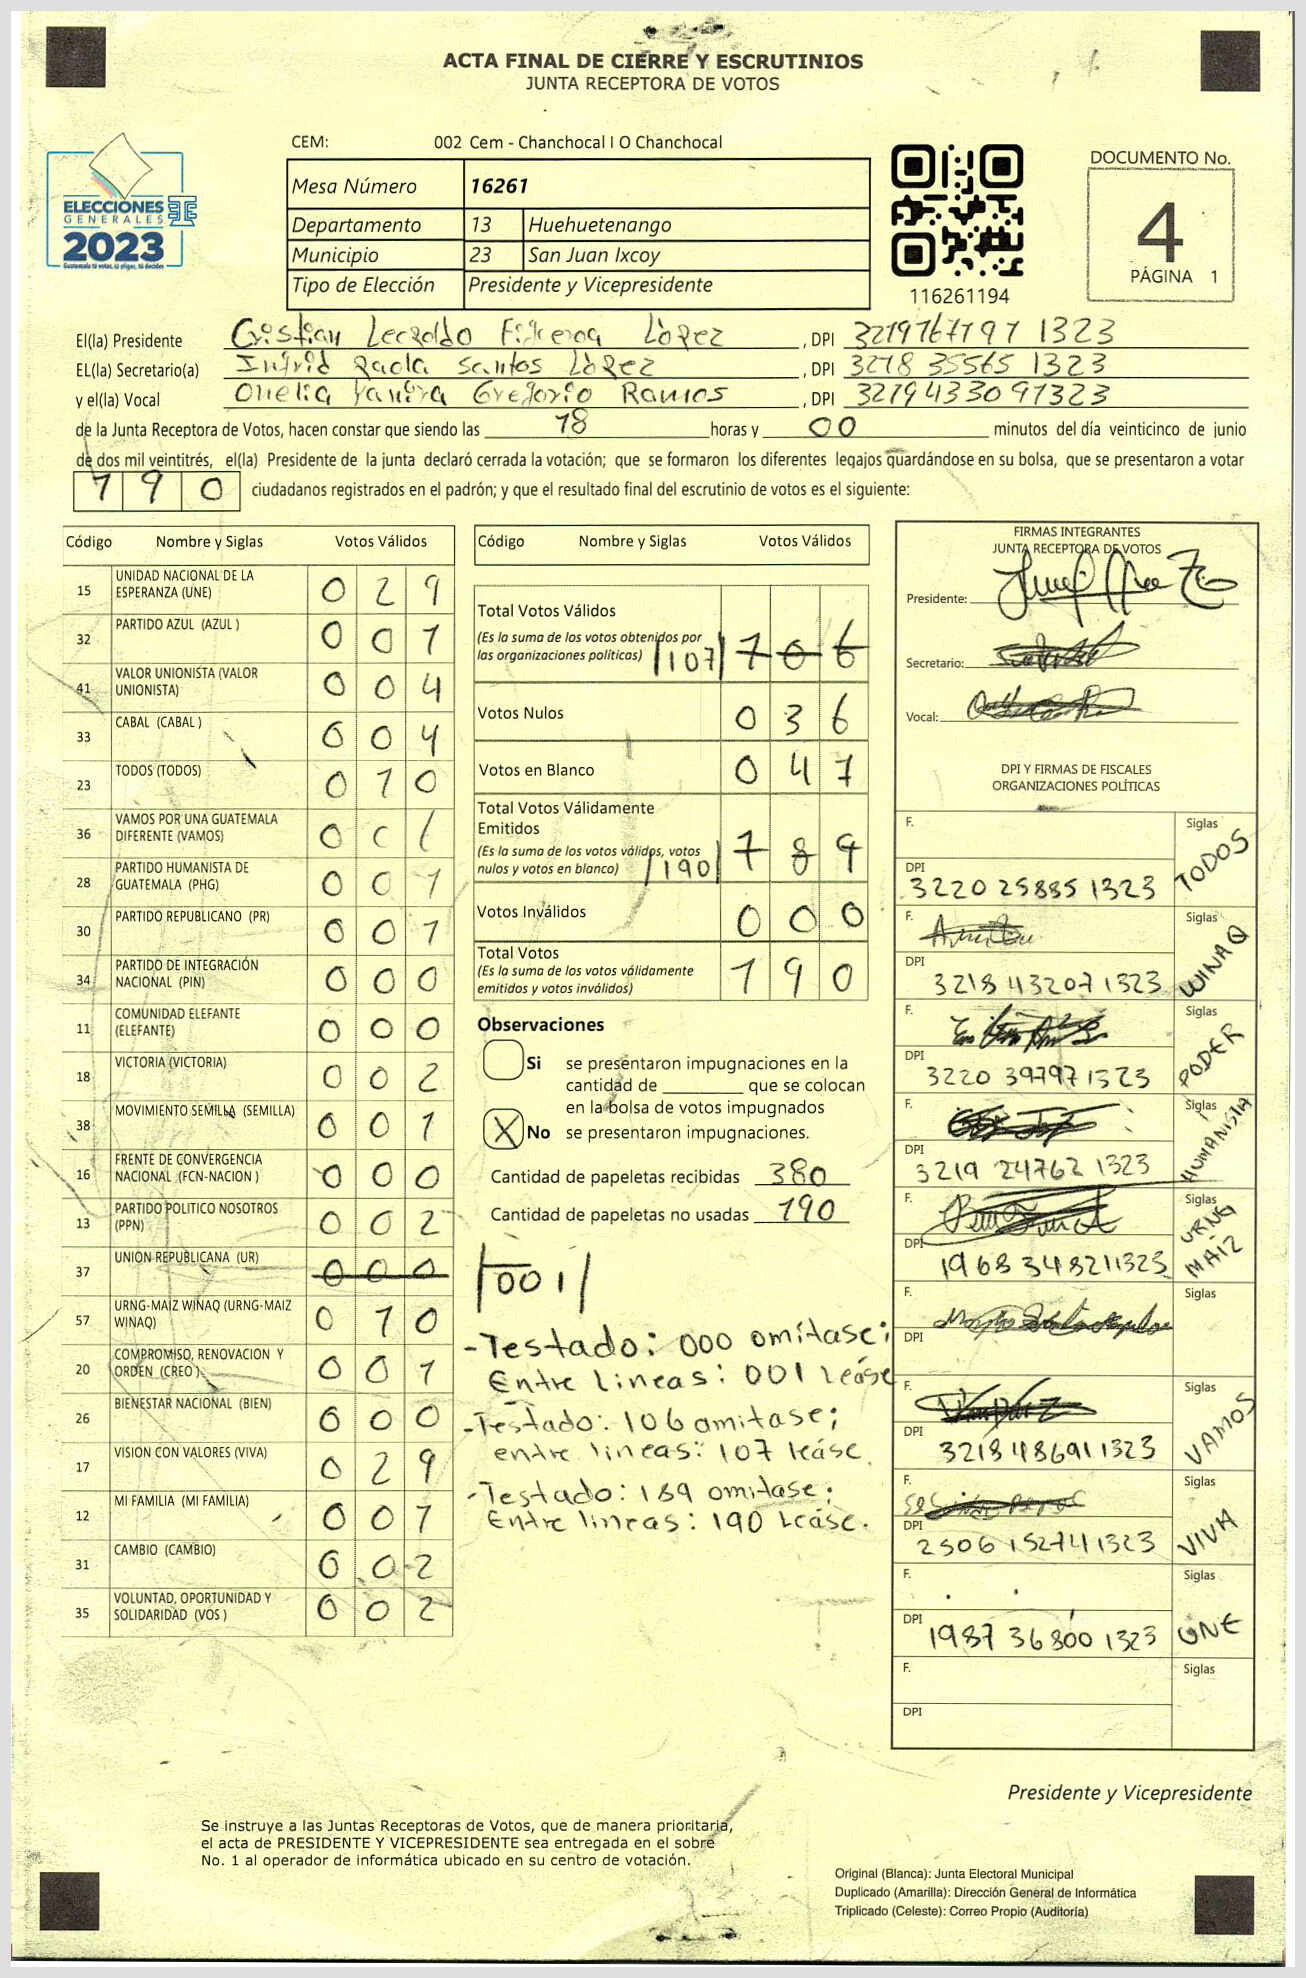 ACTA FINAL DE CIERRE Y ESCRUTINIOS
JUNTA RECEPTORA DE VOTOS
CEM: 002 Cem - Chanchocal I O Chanchocal
ELECCIONES
GENERALES
2023
Guatemala tú votas, tú eliges, tú decides
Mesa Número 16261
Departamento 13 Huehuetenango
Municipio 23 San Juan Ixcoy
Tipo de Elección Presidente y Vicepresidente
116261194
DOCUMENTO No.
4
PÁGINA 1
El(la) Presidente Cristian Figueroa López, DPI
EL(la) Secretario(a) Ingrid Paola Santos López, DPI 3218 35565 1323
y el(la) Vocal Gregorio Ramos, DPI 3219433091323
de la Junta Receptora de Votos, hacen constar que siendo las 18 horas y 00 minutos del día veinticinco de junio
de dos mil veintitrés, el(la) Presidente de la junta declaró cerrada la votación; que se formaron los diferentes legajos guardándose en su bolsa, que se presentaron a votar
190 ciudadanos registrados en el padrón; y que el resultado final del escrutinio de votos es el siguiente:
Código Nombre y Siglas Votos Válidos
15 UNIDAD NACIONAL DE LA ESPERANZA (UNE) 0 2 9
32 PARTIDO AZUL (AZUL ) 0 0 1
41 VALOR UNIONISTA (VALOR UNIONISTA) 0 0 4
33 CABAL (CABAL ) 0 0 4
23 TODOS (TODOS) 0 1 0
36 VAMOS POR UNA GUATEMALA DIFERENTE (VAMOS)
28 PARTIDO HUMANISTA DE GUATEMALA (PHG) 0 0 1
30 PARTIDO REPUBLICANO (PR) 0 0 1
34 PARTIDO DE INTEGRACIÓN NACIONAL (PIN) 0 0 0
11 COMUNIDAD ELEFANTE (ELEFANTE) 0 0 0
18 VICTORIA (VICTORIA) 0 0 2
38 MOVIMIENTO SEMILLA (SEMILLA) 0 0 1
16 FRENTE DE CONVERGENCIA NACIONAL (FCN-NACION ) 0 0 0
13 PARTIDO POLITICO NOSOTROS (PPN) 0 0 2
37 UNION REPUBLICANA (UR) 0 0 0
57 URNG-MAIZ WINAQ (URNG-MAIZ WINAQ) 0 1 0
20 COMPROMISO, RENOVACION Y ORDEN (CREO ) 0 0 1
26 BIENESTAR NACIONAL (BIEN) 0 0 0
17 VISION CON VALORES (VIVA) 0 2 9
12 MI FAMILIA (MI FAMILIA) 0 0 1
31 CAMBIO (CAMBIO) 0 0 2
35 VOLUNTAD, OPORTUNIDAD Y SOLIDARIDAD (VOS ) 0 0 2
Código Nombre y Siglas Votos Válidos
Total Votos Válidos
(Es la suma de los votos obtenidos por
las organizaciones políticas) /107/ 1 0 6
Votos Nulos 0 3 6
Votos en Blanco 0 4 7
Total Votos Válidamente
Emitidos
(Es la suma de los votos válidos, votos
nulos y votos en blanco) /190/ 1 8 9
Votos Inválidos 0 0 0
Total Votos
(Es la suma de los votos válidamente
emitidos y votos inválidos) 1 9 0
Observaciones
Si se presentaron impugnaciones en la
cantidad de ________ que se colocan
en la bolsa de votos impugnados
X No se presentaron impugnaciones.
Cantidad de papeletas recibidas 380
Cantidad de papeletas no usadas 190
/001/
-Testado: 000 omitase;
Entre lineas: 001 Leáse
-Testado: 106 omitase;
entre lineas: 107 leáse.
-Testado: 189 omitase;
Entre lineas: 190 Leáse.
FIRMAS INTEGRANTES
JUNTA RECEPTORA DE VOTOS
Presidente:
Secretario:
Vocal:
DPI Y FIRMAS DE FISCALES
ORGANIZACIONES POLÍTICAS
F. Siglas TODOS
DPI 3220 25885 1323
F. Siglas WINAQ
DPI 3218 43207 1323
F. Siglas PODER
DPI 3220 39797 1323
F. Siglas HUMANISTA
DPI 3219 24762 1323
F. Siglas URNG MAIZ
DPI 1968 34821 1323
F. Siglas
DPI
F. Siglas VAMOS
DPI 3218 48691 1323
F. Siglas VIVA
DPI 2506 15274 1323
F. Siglas UNE
DPI 1987 36800 1323
F. Siglas
DPI
Presidente y Vicepresidente
Se instruye a las Juntas Receptoras de Votos, que de manera prioritaria,
el acta de PRESIDENTE Y VICEPRESIDENTE sea entregada en el sobre
No. 1 al operador de informática ubicado en su centro de votación.
Original (Blanca): Junta Electoral Municipal
Duplicado (Amarilla): Dirección General de Informática
Triplicado (Celeste): Correo Propio (Auditoría)